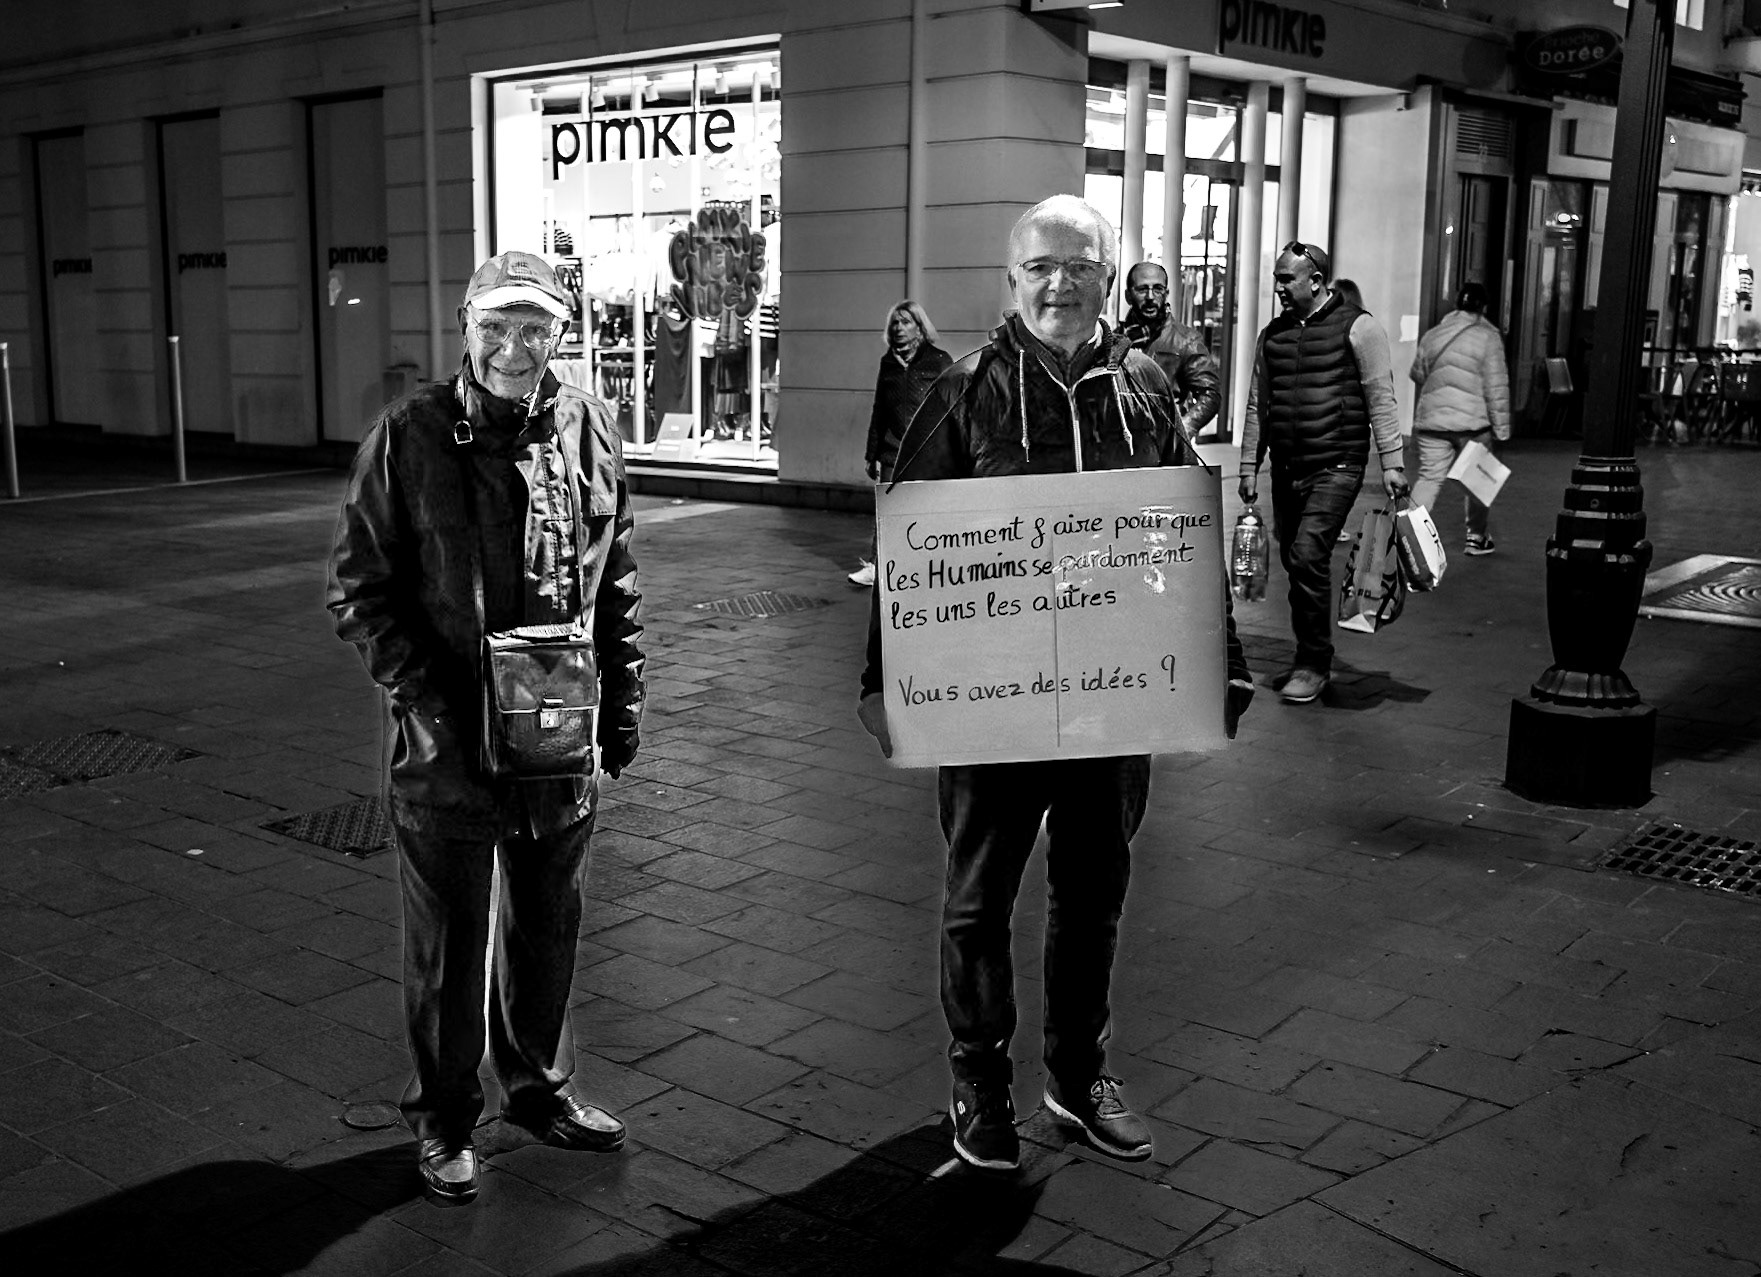 pimkie
Doree
pimkie
PIMKIE
pimkie
pimkie
pimkie
Comment faire pour que
les Humains se pardonnent
les uns les autres
Vous avez des idées ?